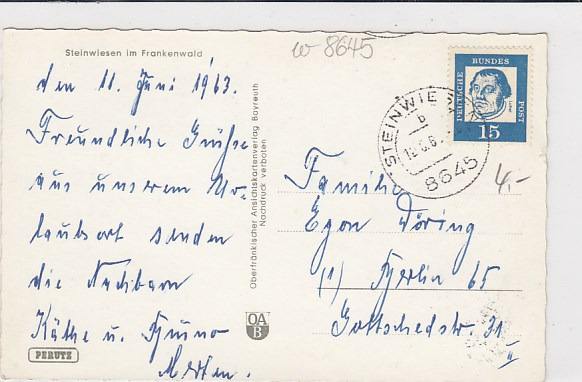 w 8645
Steinwiesen im Frankenwald
DEUTSCHE BUNDES POST
15
STEINWIE
b
8645
4,-
den 11. Juni 1963.
Freundliche Grüße
aus unserem Ur-
laubsort senden
die Nachbarn
Käthe u. Bruno
Oberfränkischer Ansichtskartenverlag Bayreuth
Nachdruck verboten
OA
B
PERUTZ
Familie
Egon Döring
(1) Berlin 65
Gottschedstr. 31 II